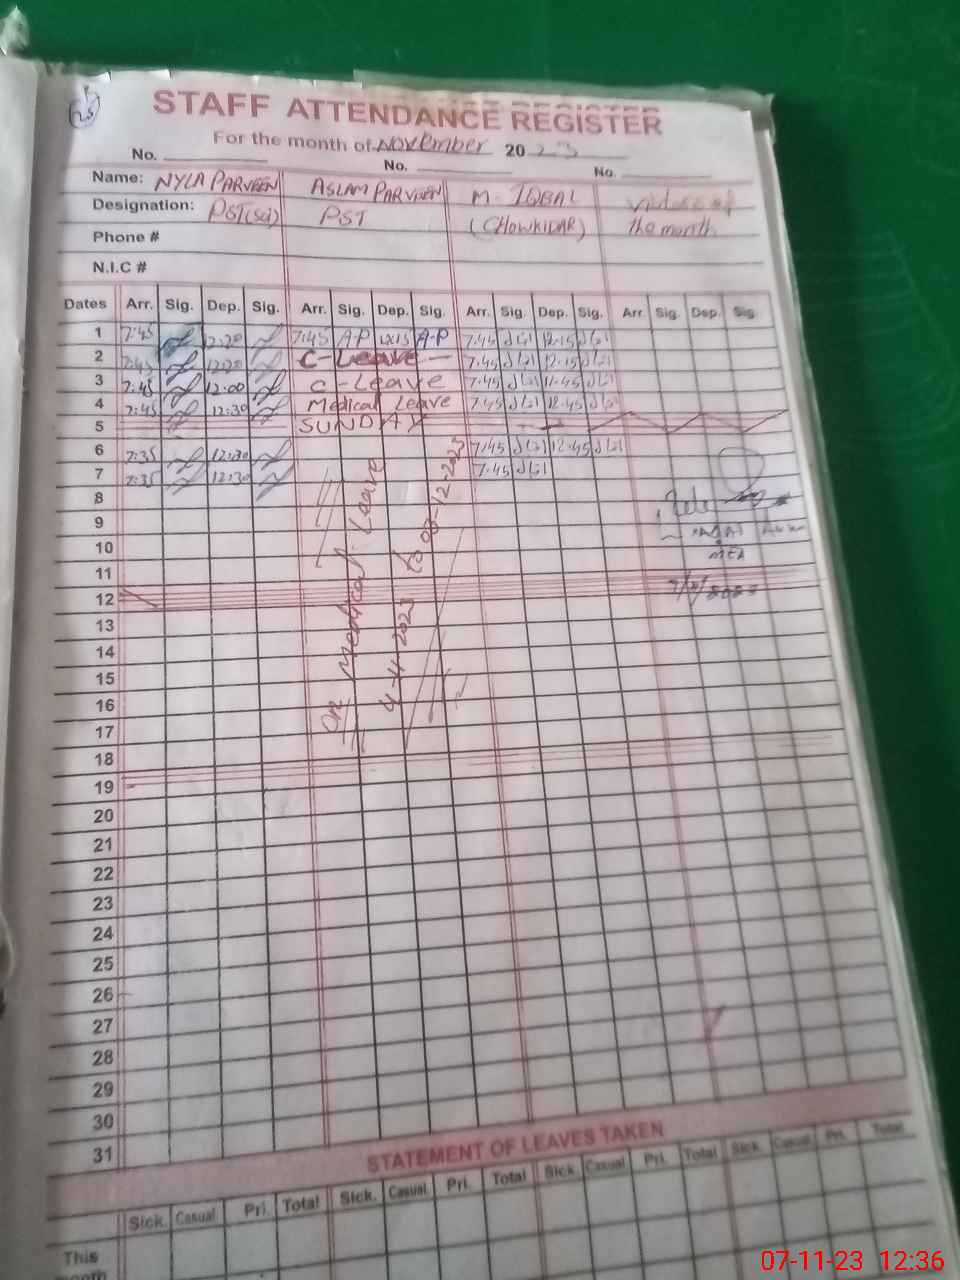 25
STAFF ATTENDANCE REGISTER
For the month of November 2023
No. No. No.
Name: NYLA PARVEEN ASLAM PARVEEN M. IQBAL
Designation: PST(Sci) PST (CHOWKIDAR) the month
Phone #
N.I.C #
Dates Arr. Sig. Dep. Sig. Arr. Sig. Dep. Sig. Arr. Sig. Dep. Sig. Arr. Sig. Dep. Sig.
1 7:45 12:20 7:45 A-P 12:15 A-P 7:45 12:15
2 7:45 12:20 C-Leave 7:45 12:15
3 7:45 12:00 C-Leave 7:45 11:45
4 7:45 12:30 Medical Leave 7:45 12:45
5 SUNDAY
6 7:35 12:30 7:45 12:45
7 7:35 12:30 7:45
8
9
10
11
12
13
14
15
16
17
18
19
20
21
22
23
24
25
26
27
28
29
30
31
On Medical Leave
4-11-2023 to 03-12-2023
MEA
STATEMENT OF LEAVES TAKEN
Sick. Casual Pri. Total Sick. Casual Pri. Total Sick. Casual Pri. Total Sick. Casual Pri. Total
This
month
07-11-23 12:36